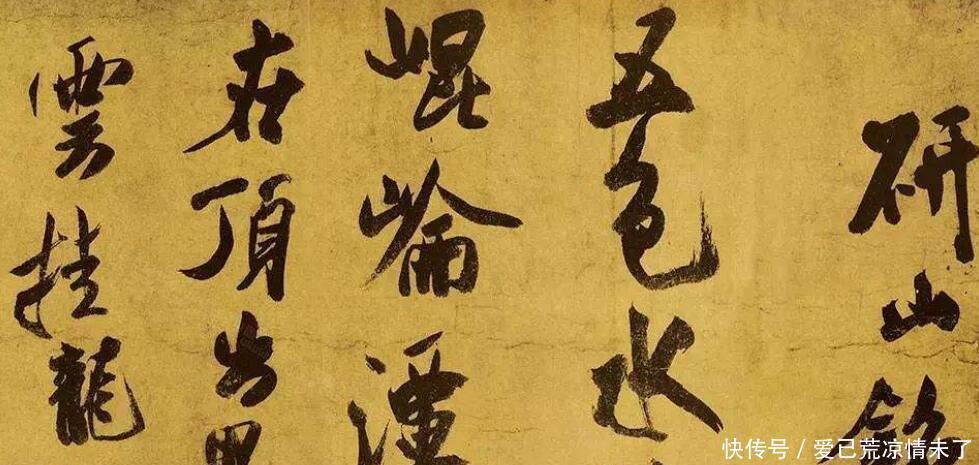 研山銘
五色水
崐崘潭
在頂出黑
雲挂龍
快传号 / 爱已荒凉情未了